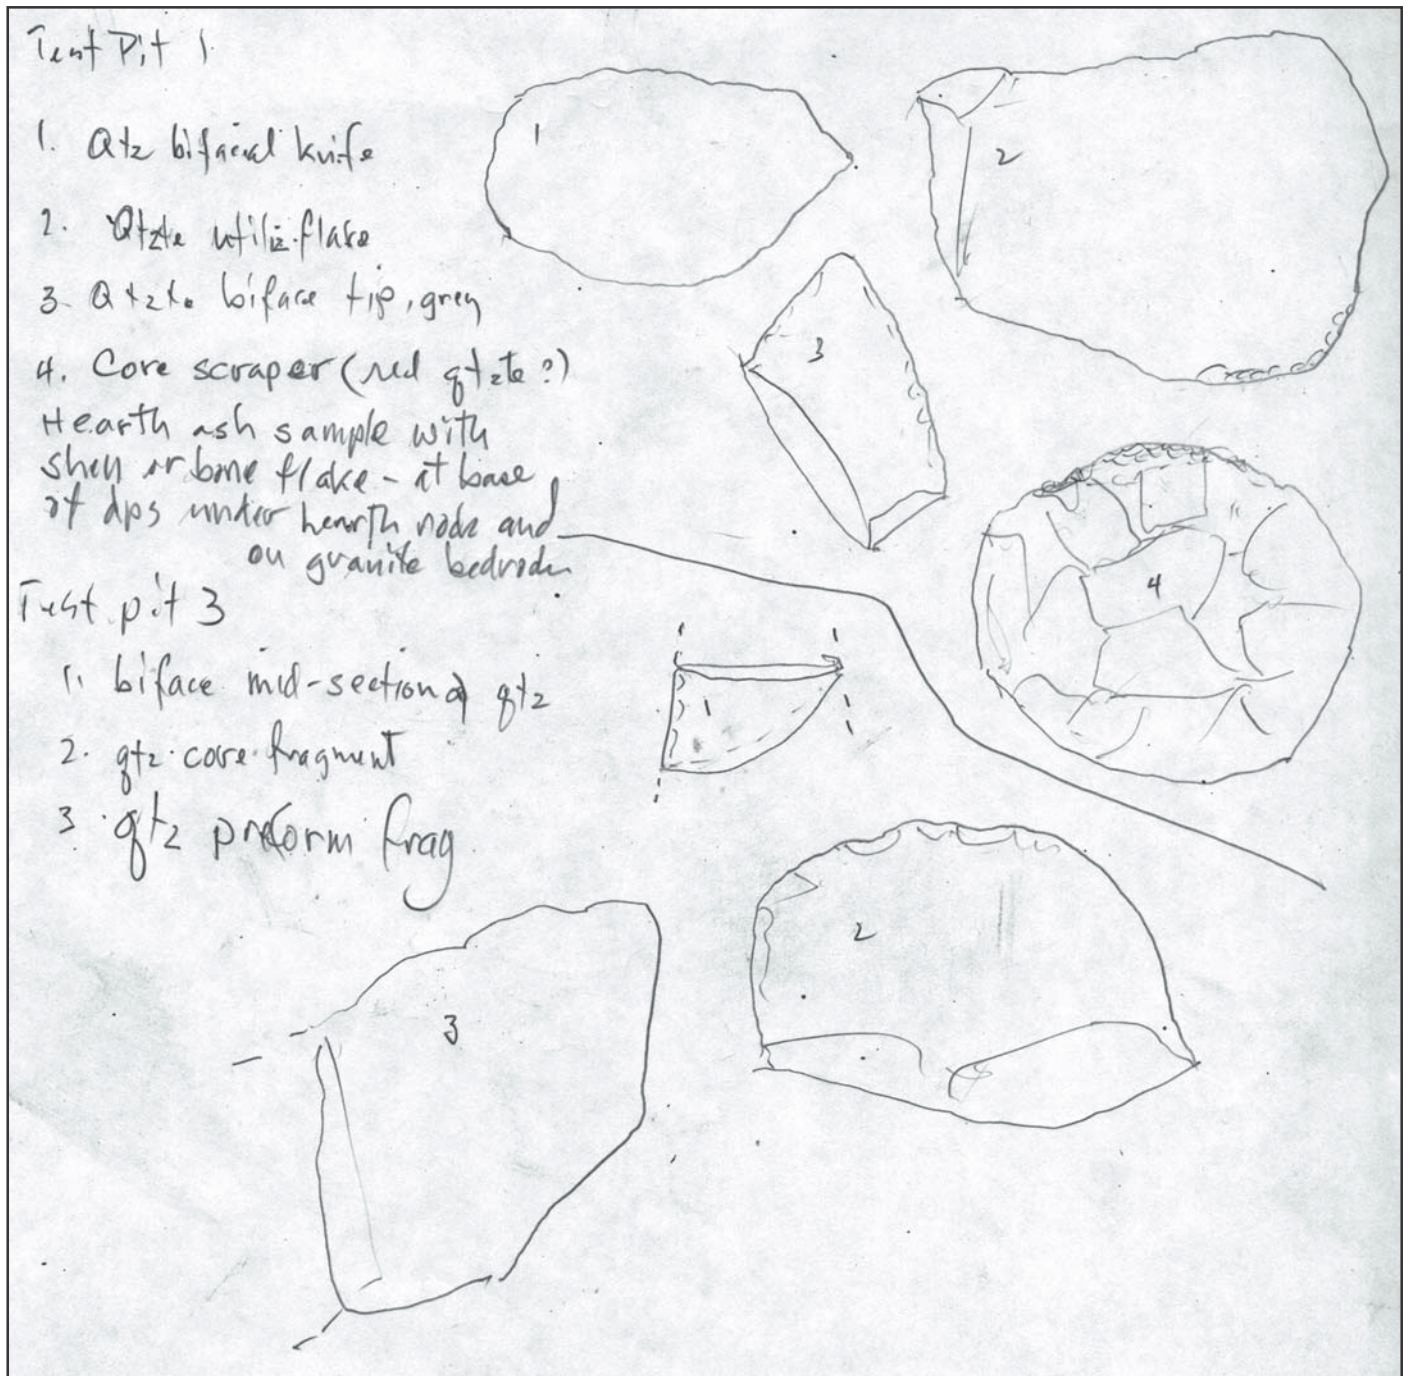 Test Pit 1
1. Qtz bifacial knife
2. Qtzte utiliz. flake
3. Qtzte biface tip, grey
4. Core scraper (red qtzte?)
Hearth ash sample with
shell or bone flake - at base
of dps under hearth rocks and
on granite bedrock
Test pit 3
1. biface mid-section of qtz
2. qtz core fragment
3. qtz preform frag
1
2
3
4
1
2
3